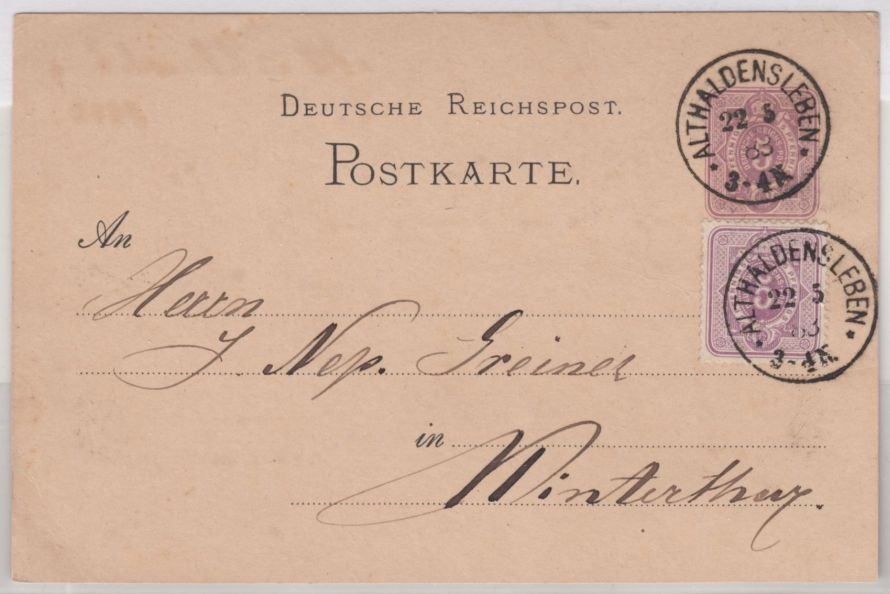 DEUTSCHE REICHSPOST.
POSTKARTE.
ALTHALDENSLEBEN
22 5
83
3-4N.
ALTHALDENSLEBEN
22 5
83
3-4N.
An
Herrn
J. Nep. Greiner
in
Winterthur.